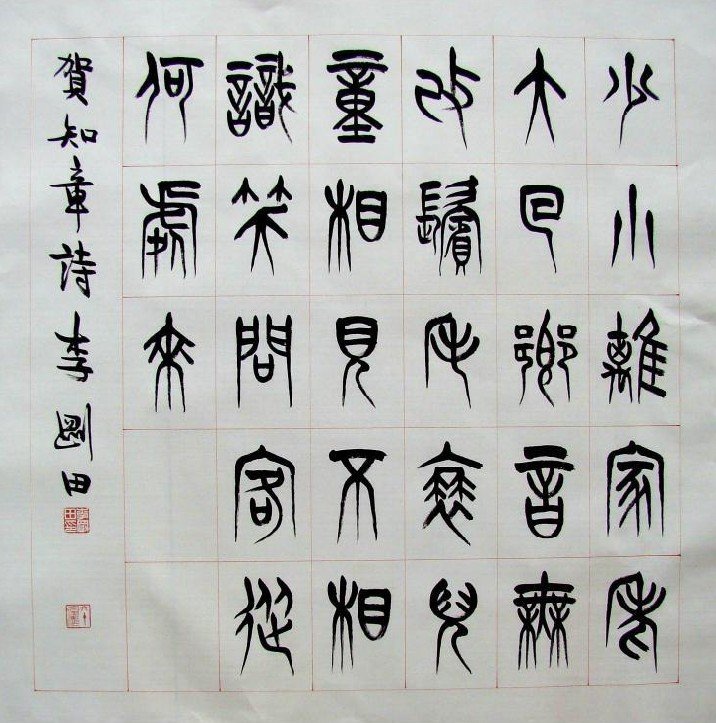 少小離家老
大回鄉音無
改鬢毛衰兒
童相見不相
識笑問客從
何處來
賀知章詩李剛田